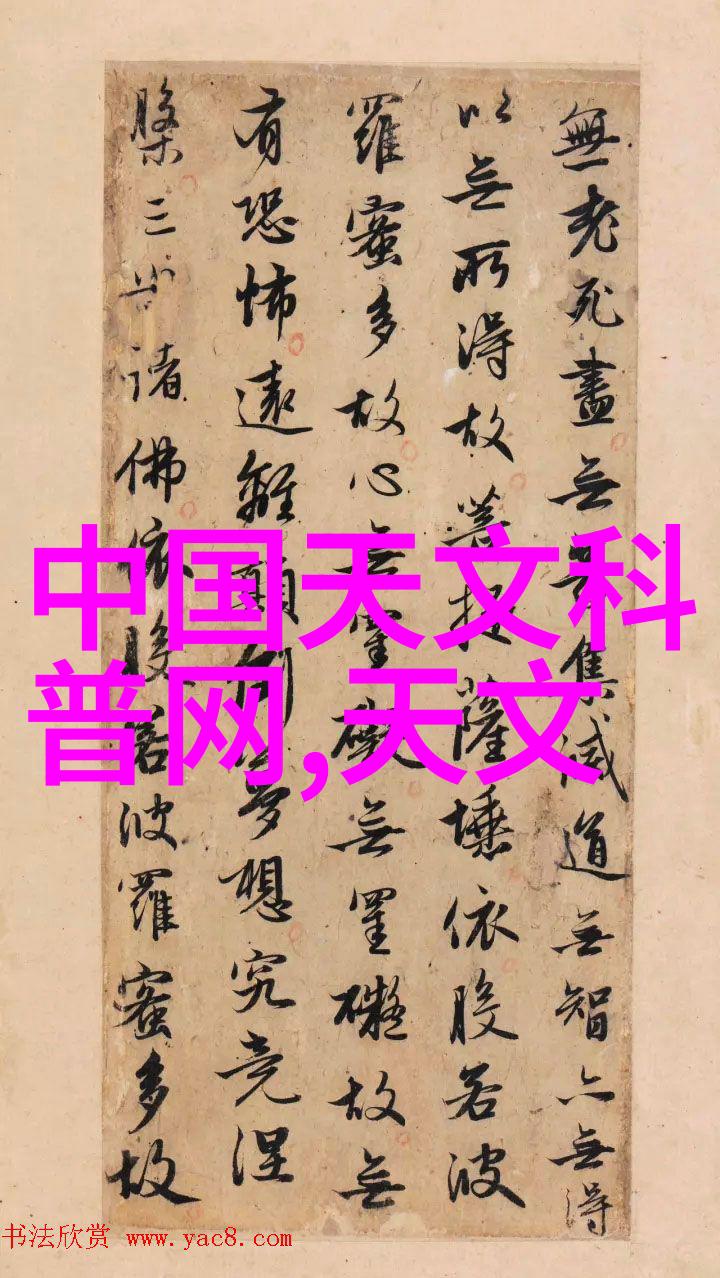 無老死盡無苦集滅道無智亦無得
以無所得故菩提薩埵依般若波
羅蜜多故心無罣礙無罣礙故無
有恐怖遠離顛倒夢想究竟涅
槃三世諸佛依般若波羅蜜多故
中国天文科
普网,天文
书法欣赏 www.yac8.com